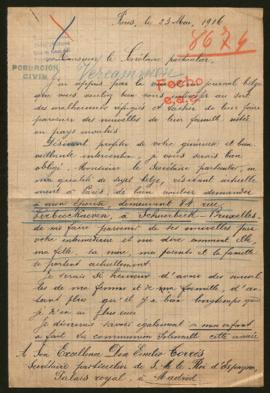 Paris, le 25 Mai, 1916
8674
Monsieur le Secrétaire particulier.
POBLACION
CIVIL
Vercampenne
J'ai appris par le journal belge
que vous voulez bien vous occuper du sort
des malheureux réfugiés et tâcher de leur faire
parvenir des nouvelles de leur famille restée
en pays envahis
Désirant profiter de votre généreuse et bien-
veillante intervention, je vous serais bien
obligé, Monsieur le Secrétaire particulier, en
ma qualité de sujet belge, résidant actuelle-
ment à Paris, de bien vouloir demander
à mon épouse, demeurant 14 rue
à Schaerbeek-Bruxelles,
de me faire parvenir de ses nouvelles par
votre intermédiaire et me dire comment elle,
ma fille, sa mère, nos parents et la famille
se portent actuellement.
Je serais si heureux d'avoir des nouvel-
les de ma femme et de ma famille, d'au-
tant plus qu'il y a bien longtemps que
je n'en ai plus eues.
Je désirerais savoir également si mon enfant
a fait sa communion solennelle cette année
A Son Excellence Don Emilio
Secrétaire particulier de S. M. le Roi d'Espagne,
Palais royal, à Madrid.